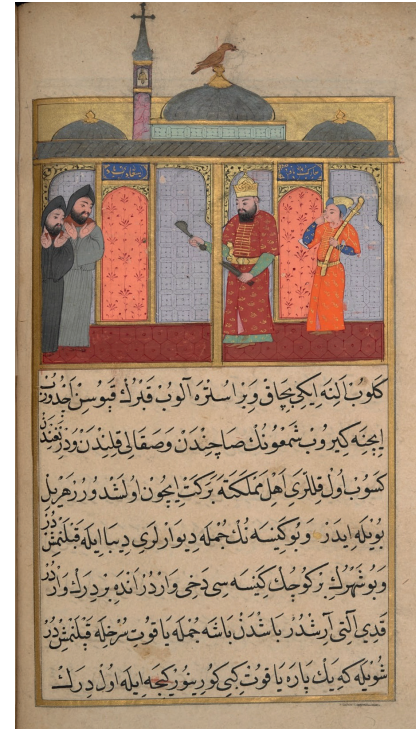 كلوب النه ايكى بچاق وبر استره آلوب قبرك قپوسن اچدوب
ايچنه كيروب شمعونك صاچندن وصقالى قلیندن
كسوب اول قللرى اهل مملكته بركت ايچون اولشدورر زهر ييل
بويله ايدر وبو كنيسه نك جمله ديوارلرى ديبا ايله قپلنمش در
وبو شهرك بر كوچك كنيسه سى دخى واردر انده بر درك واردر
قدى آلتى آرشندر باشدن باشه جمله ياقوت سرخله قپلنمش در
شويله كه يك پاره ياقوت كبى كورينور كيجه ايله اول درك